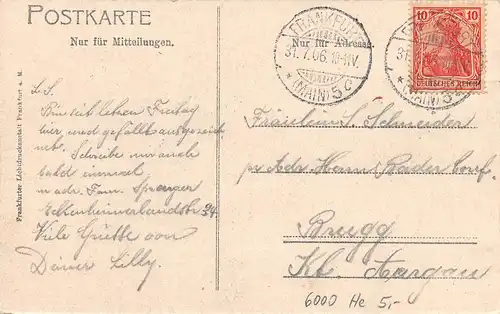 POSTKARTE
Nur für Mitteilungen.
Nur für Adresse.
FRANKFURT
31.7.06.
*(MAIN)5c
FRANKF
31.
*(MAIN)5c
10 10
DEUTSCHES REICH
Frankfurter Lichtdruckanstalt Frankfurt a. M.
L. S.
Bin seit letzten Freitag
hier und gefällt ausgezeich
net. Schreibe mir auch
bald einmal
adr. Fam. Sprenger
34.
Viele Grüsse von
Deiner Lilly.
Fräulein S. Schneider
pr Adr. Herrn Bader Conf.
Brugg
Kt. Aargau
6000 He 5,-